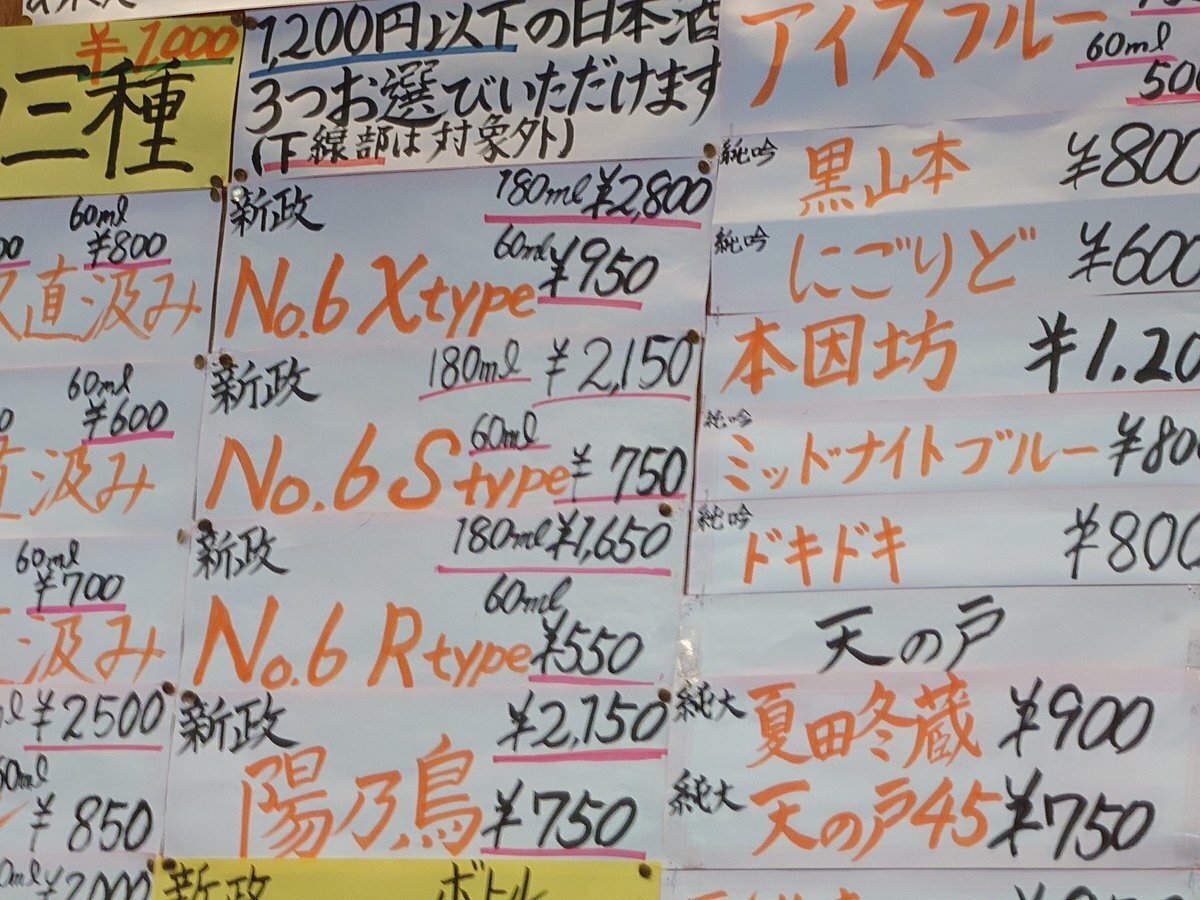 ¥1,000
三種
60ml
¥800
直汲み
60ml
¥600
直汲み
60ml
¥700
汲み
¥2500
60ml
¥850
¥2000
1,200円以下の日本酒
3つお選びいただけます
(下線部は対象外)
新政 180ml ¥2,800
60ml
No.6 Xtype ¥950
新政 180ml ¥2,150
60ml
No.6 Stype ¥750
新政 180ml ¥1,650
60ml
No.6 Rtype ¥550
新政 ¥2,150
陽乃鳥 ¥750
新政 ボトル
アイスブルー 60ml
50
純吟 黒山本 ¥800
純吟 にごりど ¥600
本因坊 ¥1.20
純吟 ミッドナイトブルー ¥80
純吟 ドキドキ ¥800
天の戸
純大 夏田冬蔵 ¥900
純大 天の戸45 ¥750